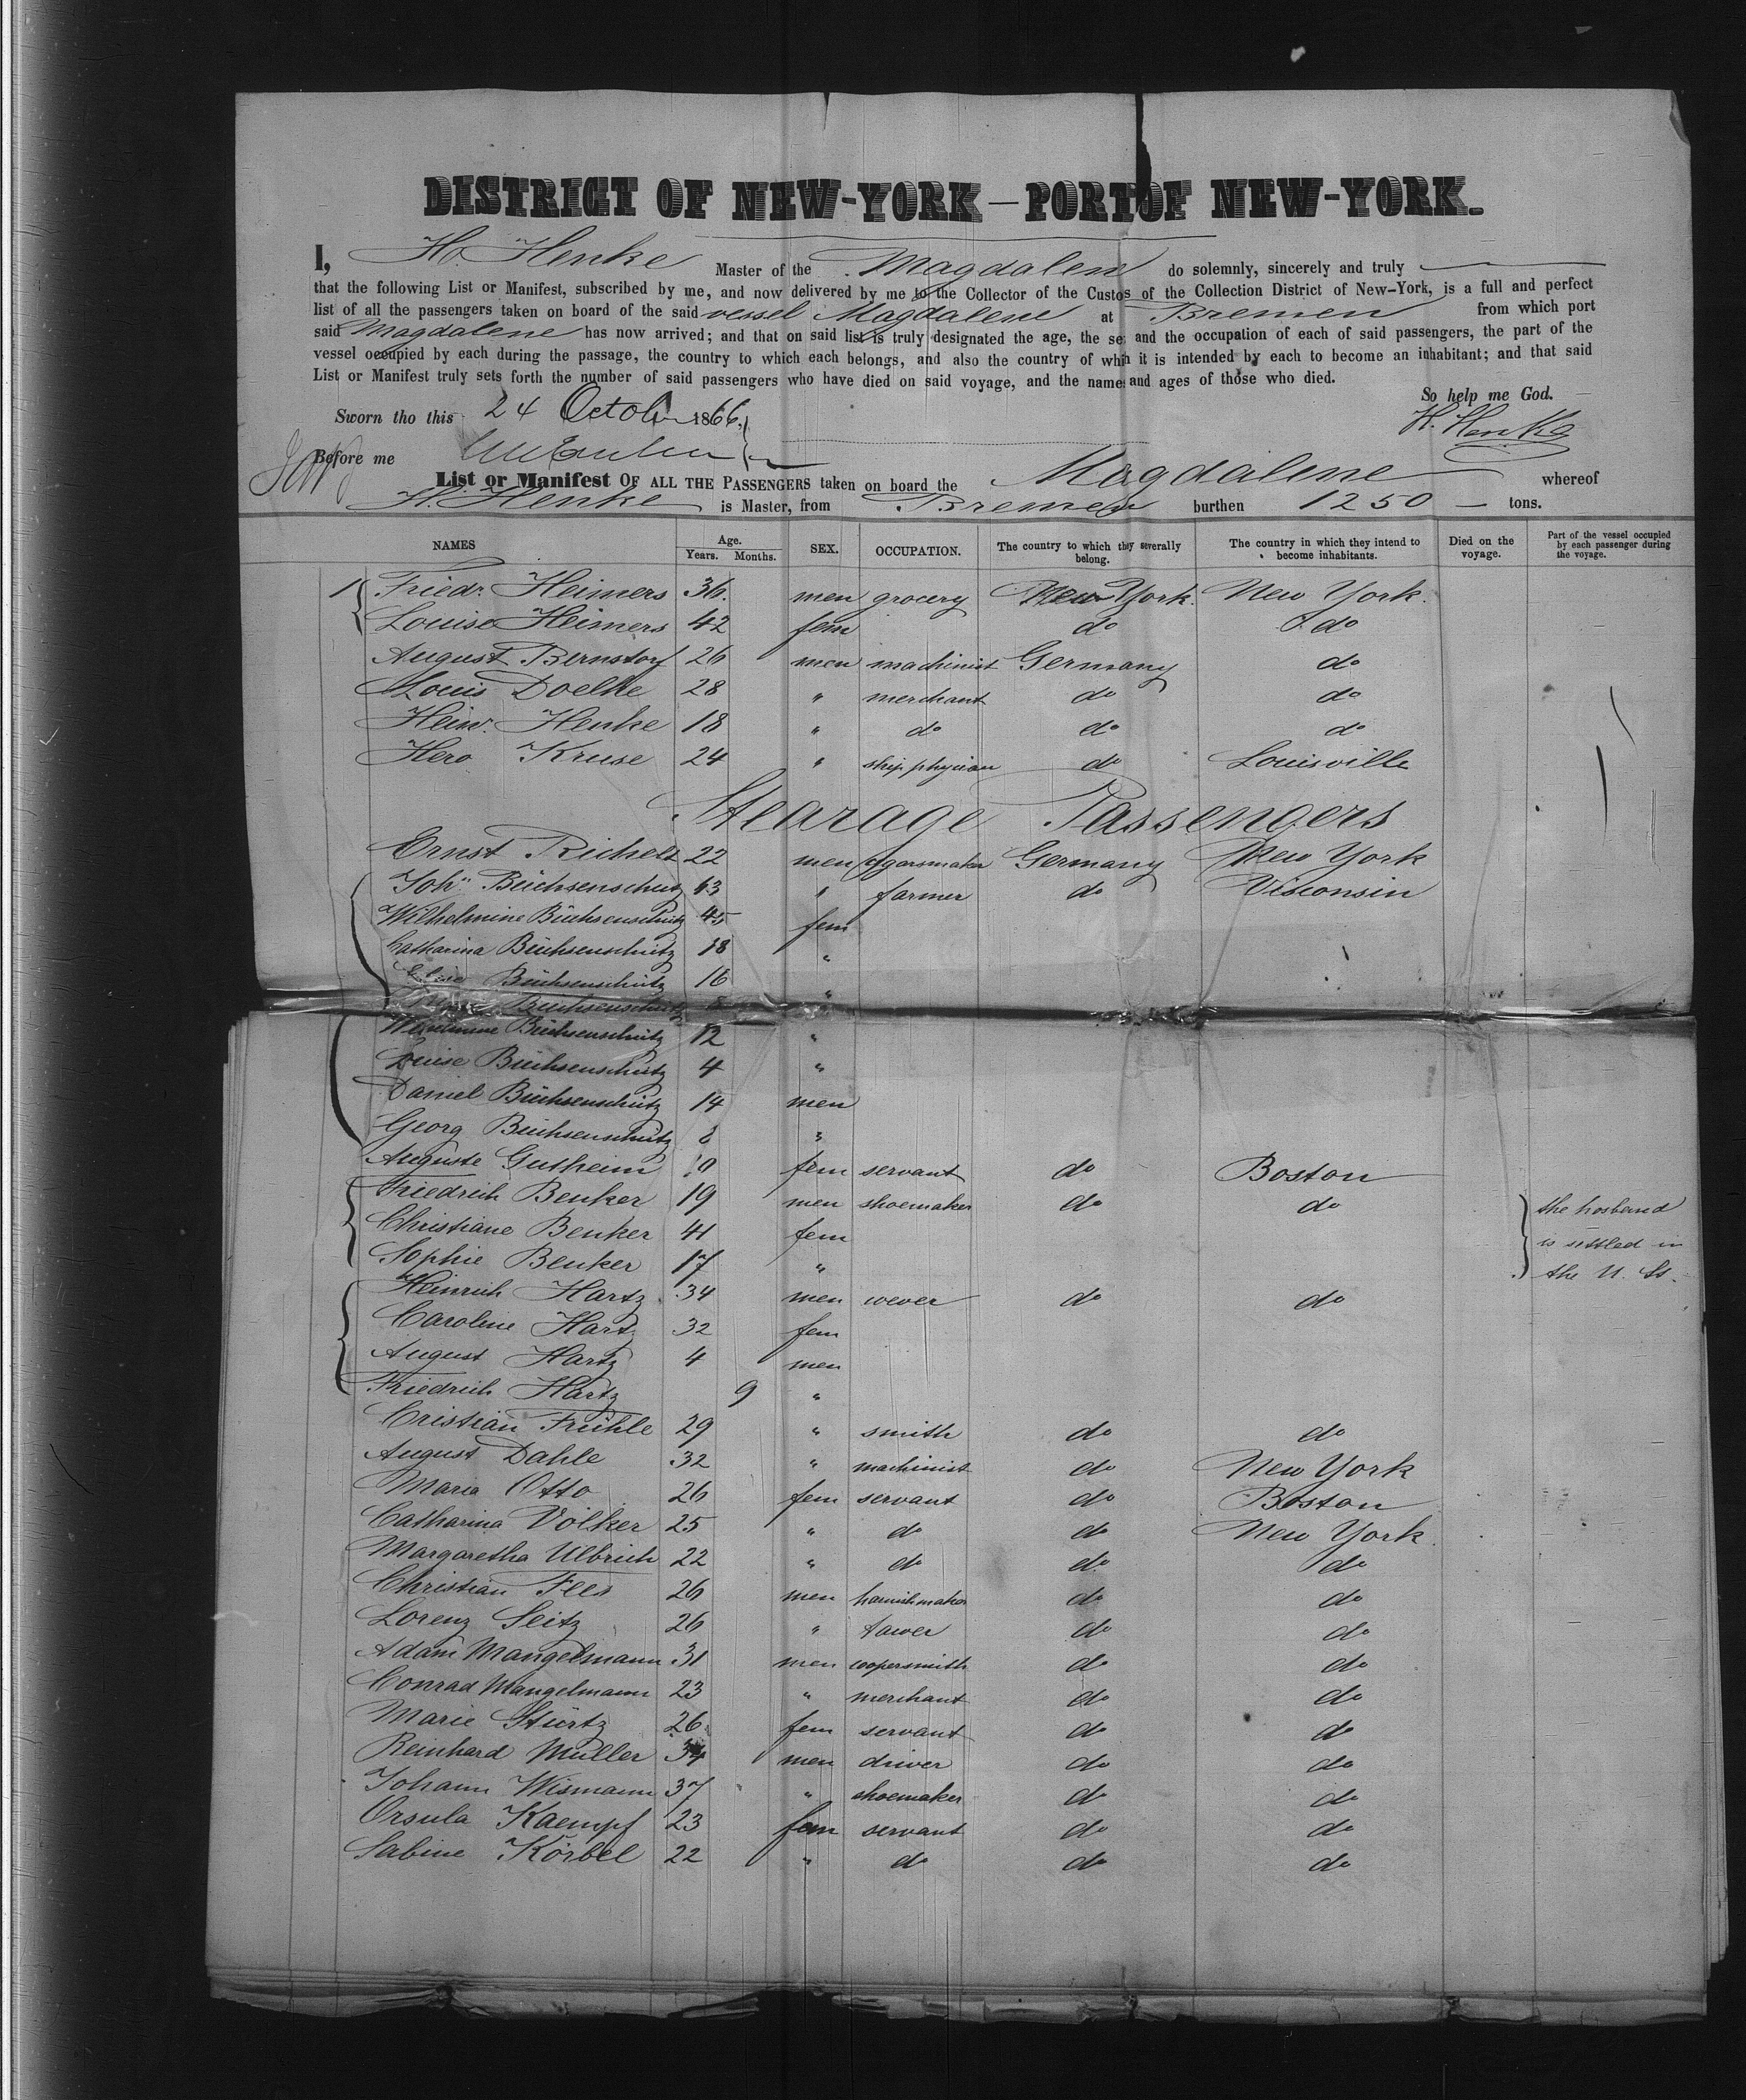 DISTRICT OF NEW-YORK—PORT OF NEW-YORK.
I, H. Henke Master of the Magdalene do solemnly, sincerely and truly
that the following List or Manifest, subscribed by me, and now delivered by me to the Collector of the Custos of the Collection District of New-York, is a full and perfect
list of all the passengers taken on board of the said vessel Magdalene at Bremen from which port
said Magdalene has now arrived; and that on said list is truly designated the age, the se and the occupation of each of said passengers, the part of the
vessel occupied by each during the passage, the country to which each belongs, and also the country of whih it is intended by each to become an inhabitant; and that said
List or Manifest truly sets forth the number of said passengers who have died on said voyage, and the names and ages of those who died.
So help me God.
Sworn tho this 24 October 1866. H. Henke
Before me
List or Manifest OF ALL THE PASSENGERS taken on board the Magdalene whereof
H. Henke is Master, from Bremen burthen 1250 tons.
NAMES Age. Years. Months. SEX. OCCUPATION. The country to which they severally belong. The country in which they intend to become inhabitants. Died on the voyage. Part of the vessel occupied by each passenger during the voyage.
1 Friedr. Heimers 36. men grocery New York. New York.
Louise Heimers 42 fem do do
August Bernstorf 26 men machinist Germany do
Louis Doelke 28 " merchant do do
Heinr. Henke 18 " do do do
Hero Kruse 24 " ship phyician do Louisville
Stearage Passengers
Ernst Richelt 22 men cygarsmaker Germany New York
Joh" Büchsenschütz 43 " farmer do Visconsin
Wilhelmine Büchsenschütz 45 fem
Catharina Büchsenschütz 18 "
Elise Büchsenschütz 16 "
Büchsenschütz
Wilhelmine Büchsenschütz 12 "
Luise Büchsenschütz 4 "
Daniel Büchsenschütz 14 men
Georg Büchsenschütz 8 "
Auguste Gutheim fem servant do Boston
Friedrich Benker 19 men shoemaker do do the hosband
Christiane Benker 41 fem is settled in
Sophie Benker 17 " the U. St.
Heinrich Hartz 34 men wever do do
Caroline Hartz 32 fem
August Hartz 4 men
Friedrich Hartz 9 "
Cristian Frühle 29 " smith do do
August Dahle 32 " machinist do New York
Maria Otto 26 fem servant do Boston
Catharina Völker 25 " do do New York
Margaretha Ulbrich 22 " do do do
Christian Fees 26 men harnishmaker do do
Lorenz Seitz 26 " tawer do do
Adam Mangelmann 31 men coopersmith do do
Conrad Mangelmann 23 " merchant do do
Marie Stürtz 26 fem servant do do
Reinhard Müller 34 men driver do do
Johann Wismann 37 " shoemaker do do
Orsula Kaempf 23 fem servant do do
Sabine Körbel 22 " do do do